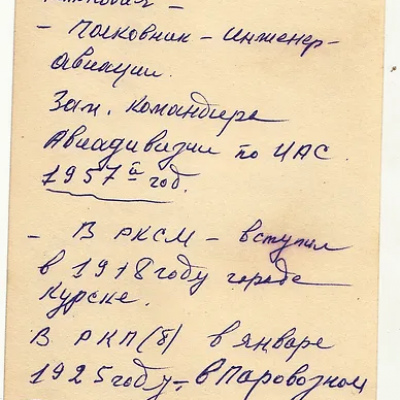 – Полковник – инженер-
авиации.
Зам. командира
Авиадивизии по ИАС.
1957й год.
– В РКСМ – вступил
в 1918 году городе
Курске.
В РКП(б) в январе
1925 году –, в Паровозном